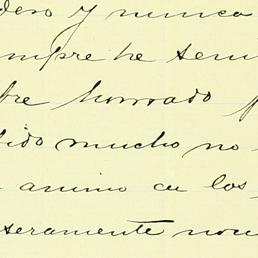 dero y nunca
mpre he sen
bre honrado
dido mucho no
animo en los
seramente non